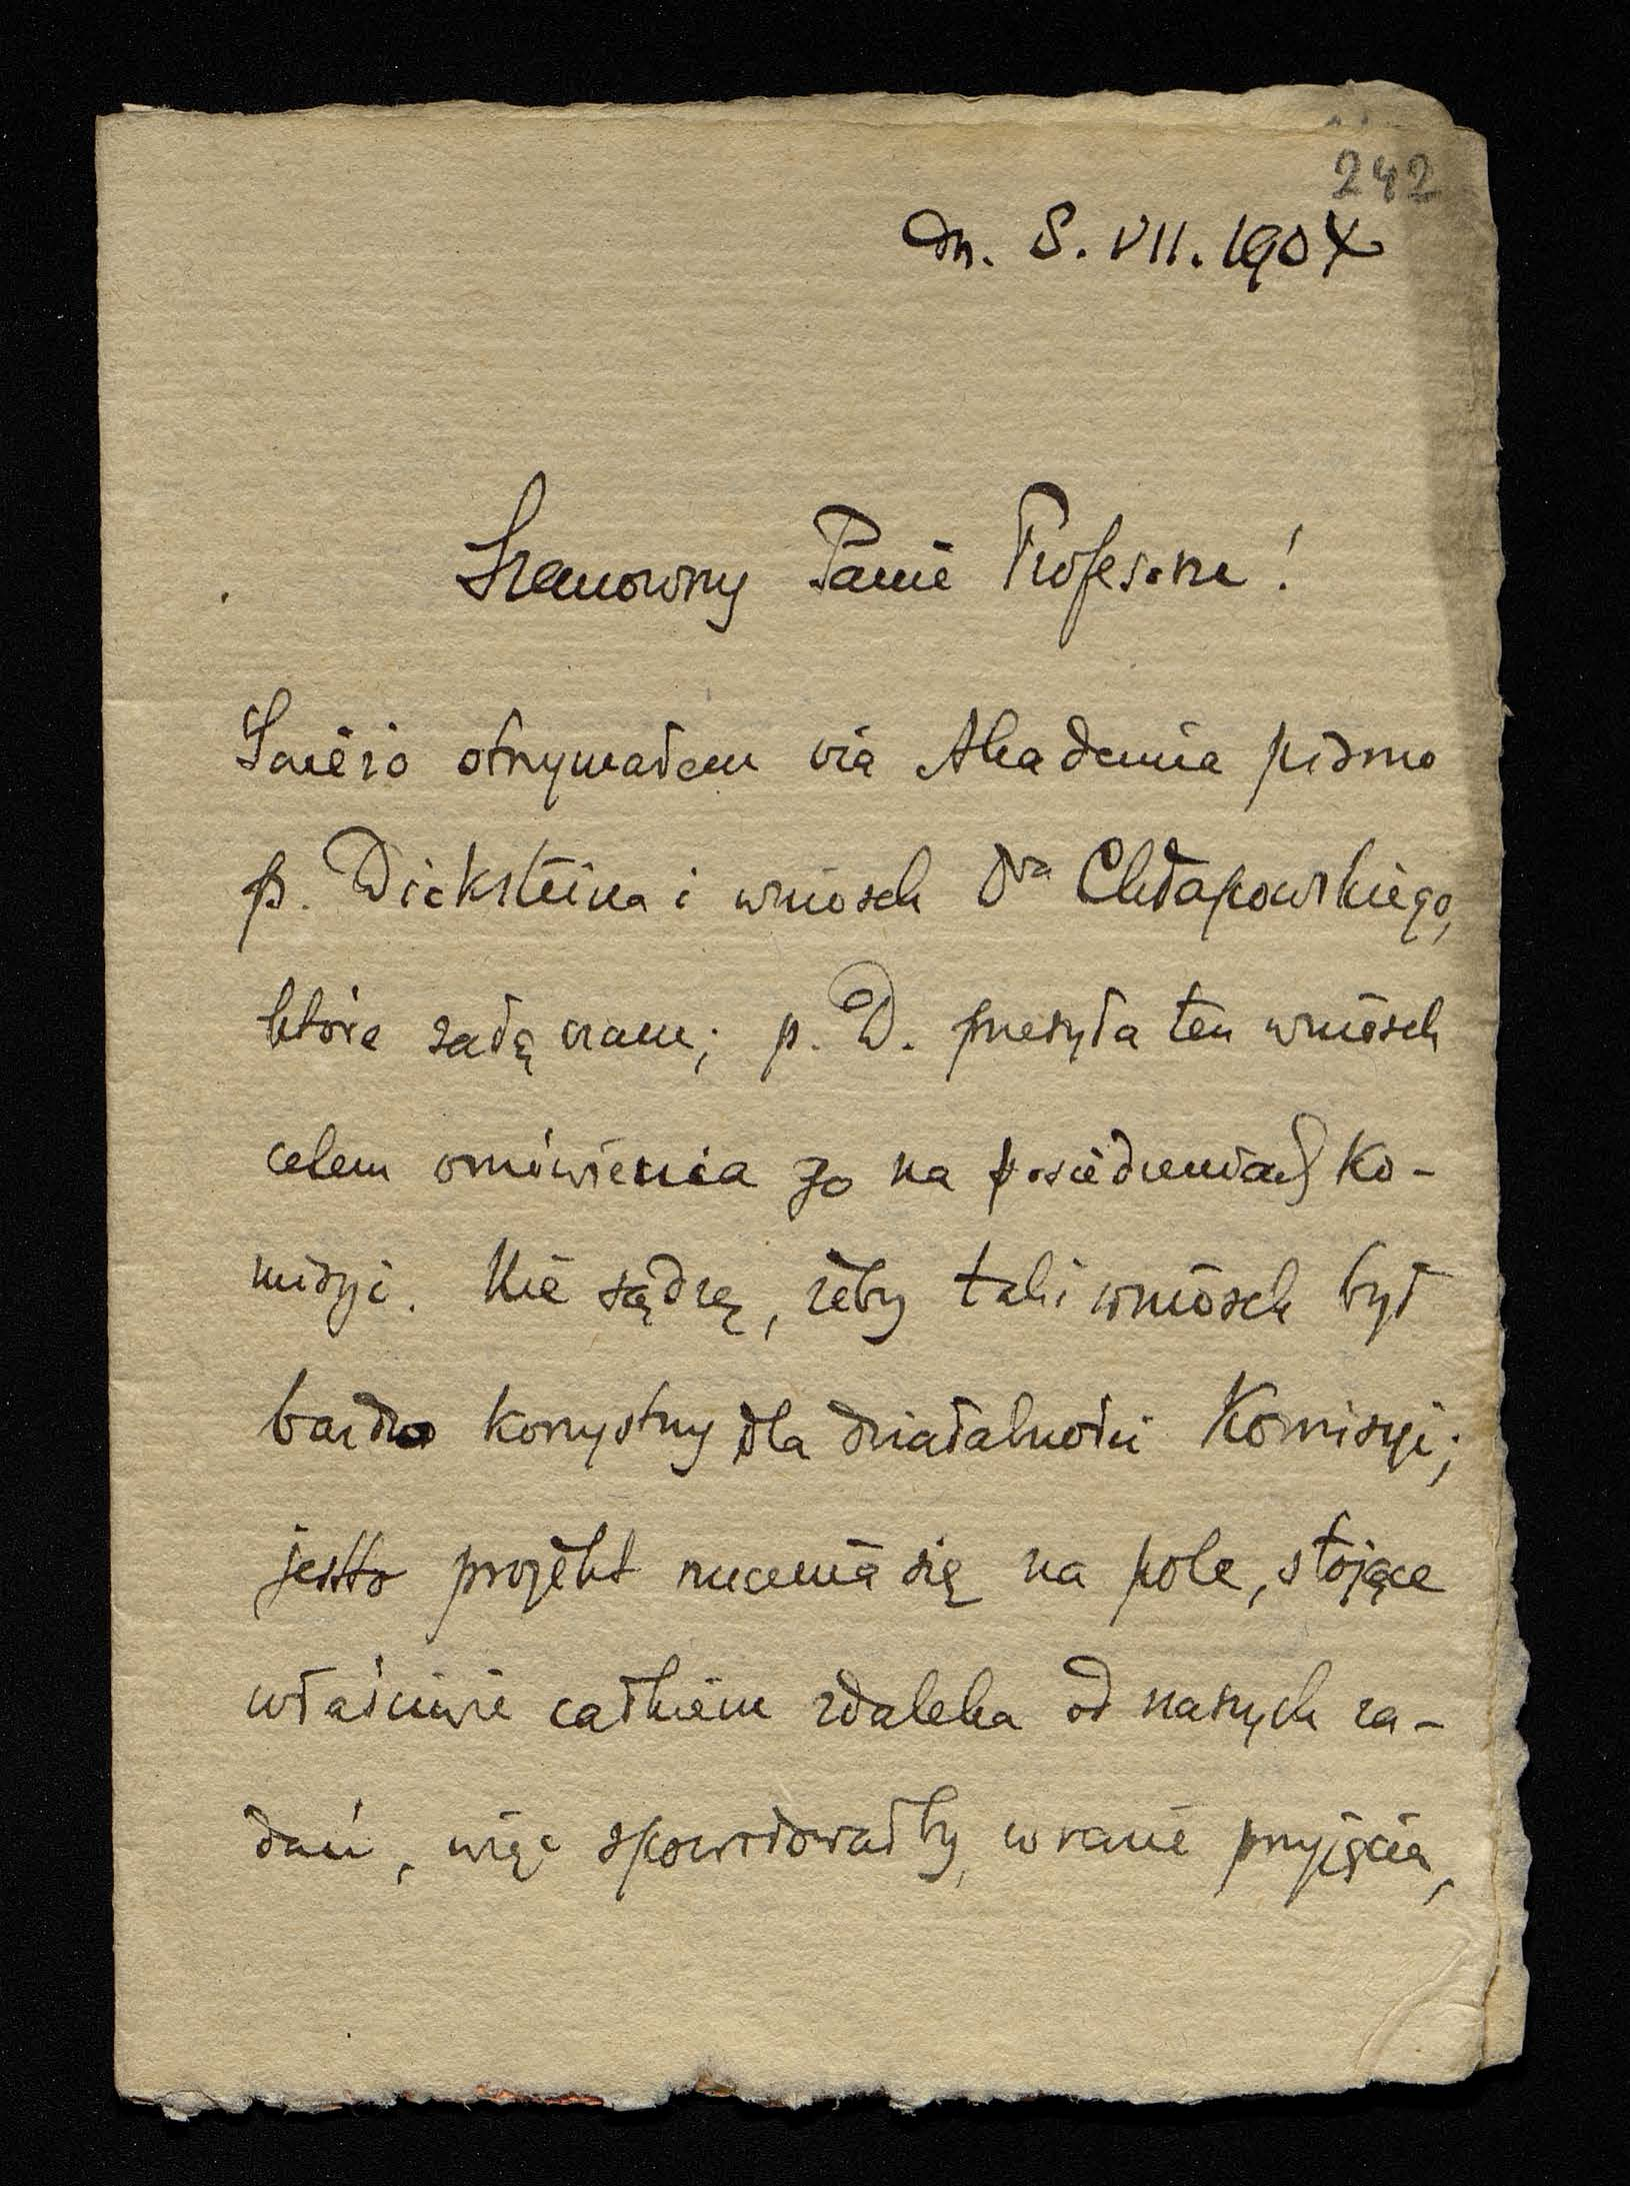 242
dn. 8. VII. 1904
Szanowny Panie Profesorze!
Świeżo otrzymałem via Akademia pismo
p. Dicksteina i wniosek Dra Chłapowskiego,
które załączam; p. D. przesyła ten wniosek
celem omówienia go na posiedzeniach Ko-
misyi. Nie sądzę, żeby taki wniosek był
bardzo korzystny dla działalności Komisyi;
jestto projekt rzucenia się na pole, stojące
właściwie całkiem zdaleka od naszych za-
dań, więc spowodowałby, w razie przyjęcia,